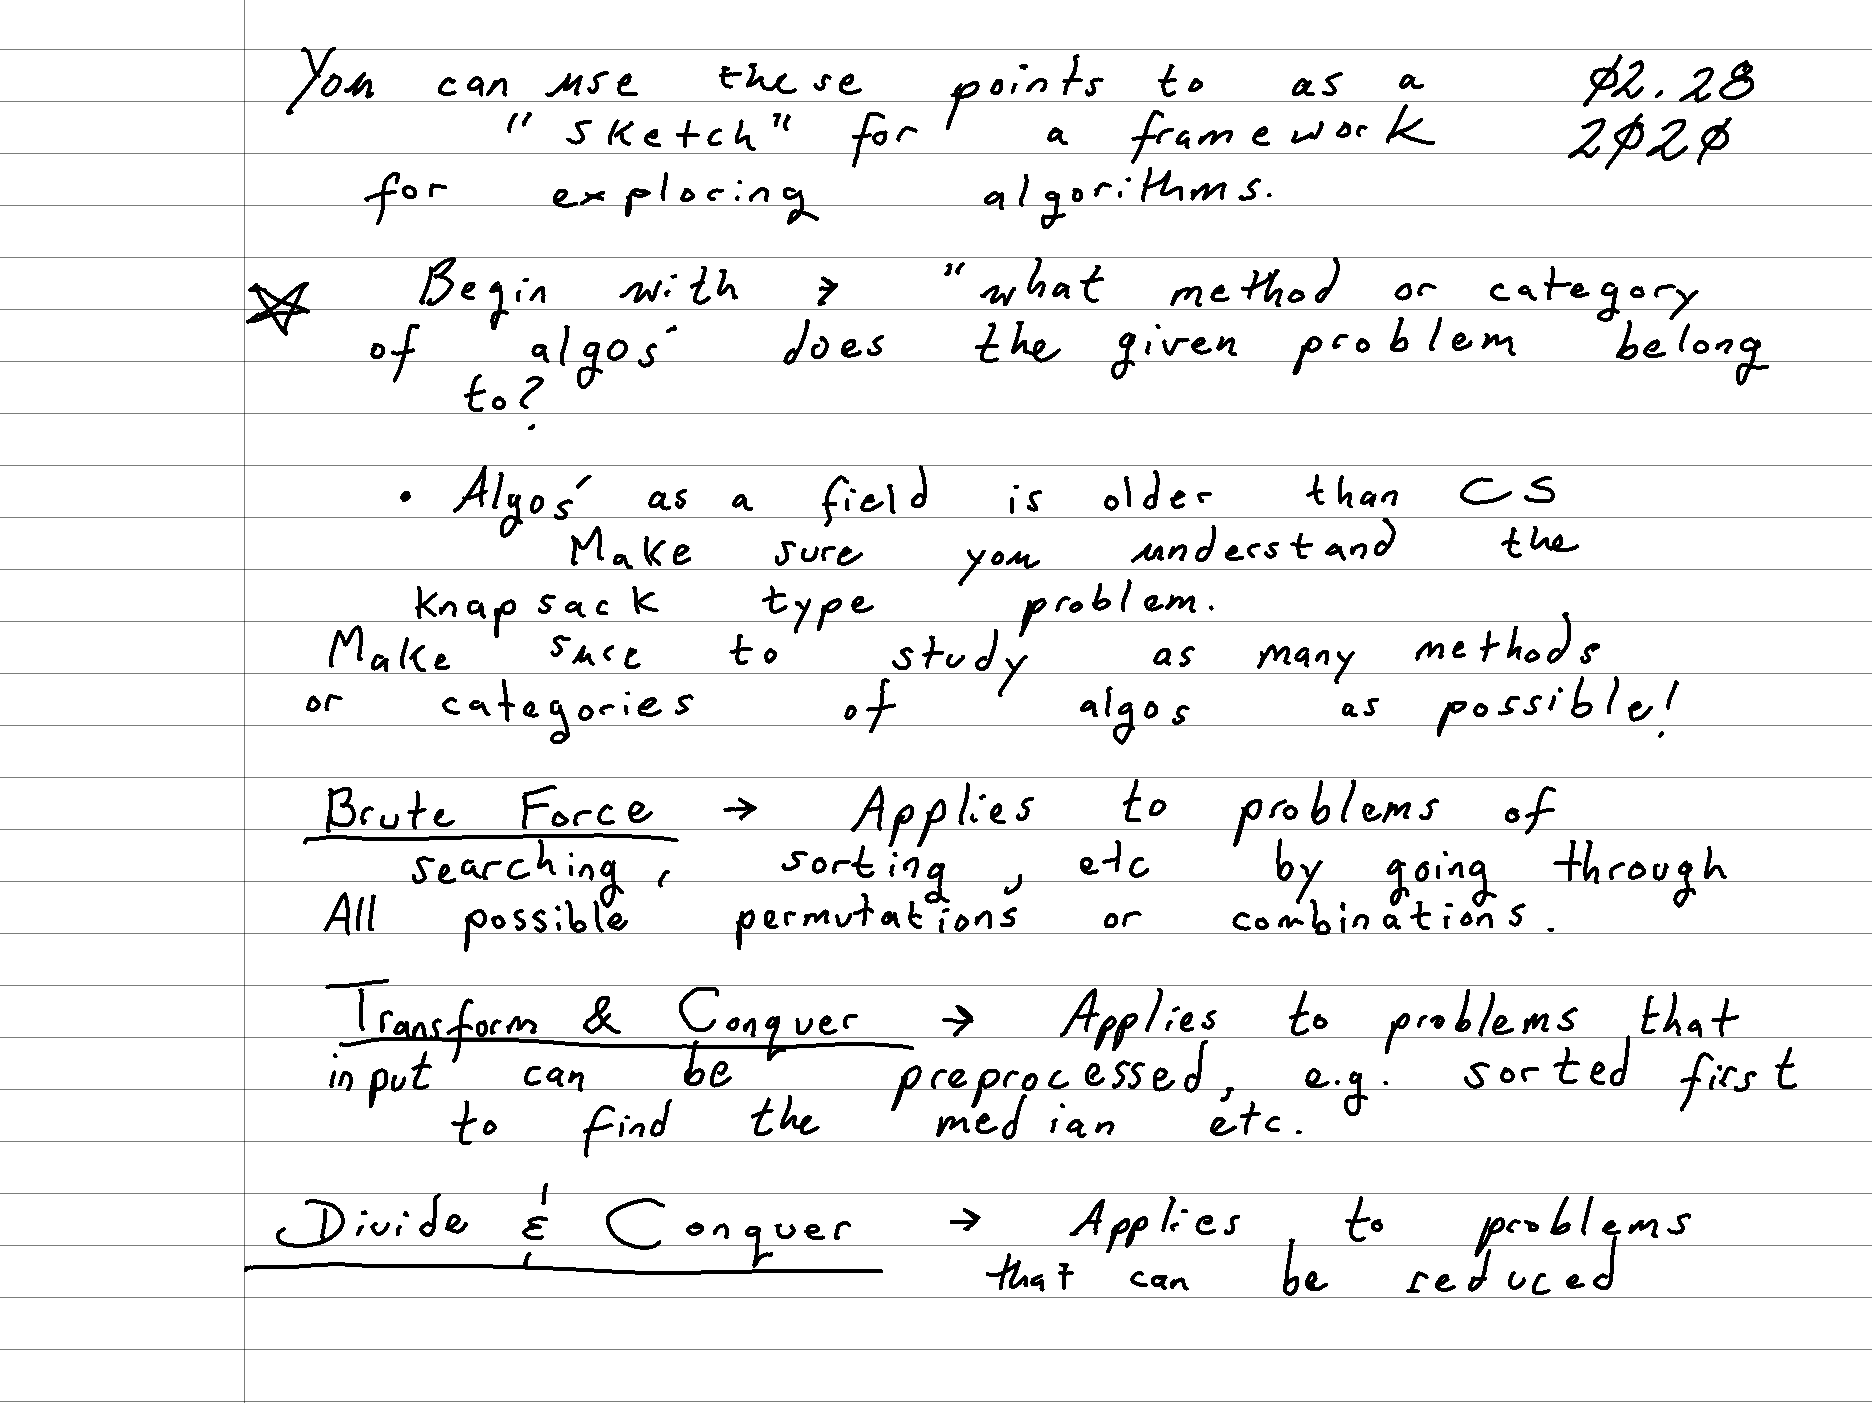 You can use these points to as a Ø2.28
"sketch" for a framework 2Ø2Ø
for exploring algorithms.
Begin with → "what method or category
of algos' does the given problem belong
to?
• Algos' as a field is older than CS
Make sure you understand the
knapsack type problem.
Make sure to study as many methods
or categories of algos as possible!
Brute Force → Applies to problems of
searching, sorting, etc by going through
All possible permutations or combinations.
Transform & Conquer → Applies to problems that
input can be preprocessed, e.g. sorted first
to find the median etc.
Divide & Conquer → Applies to problems
that can be reduced